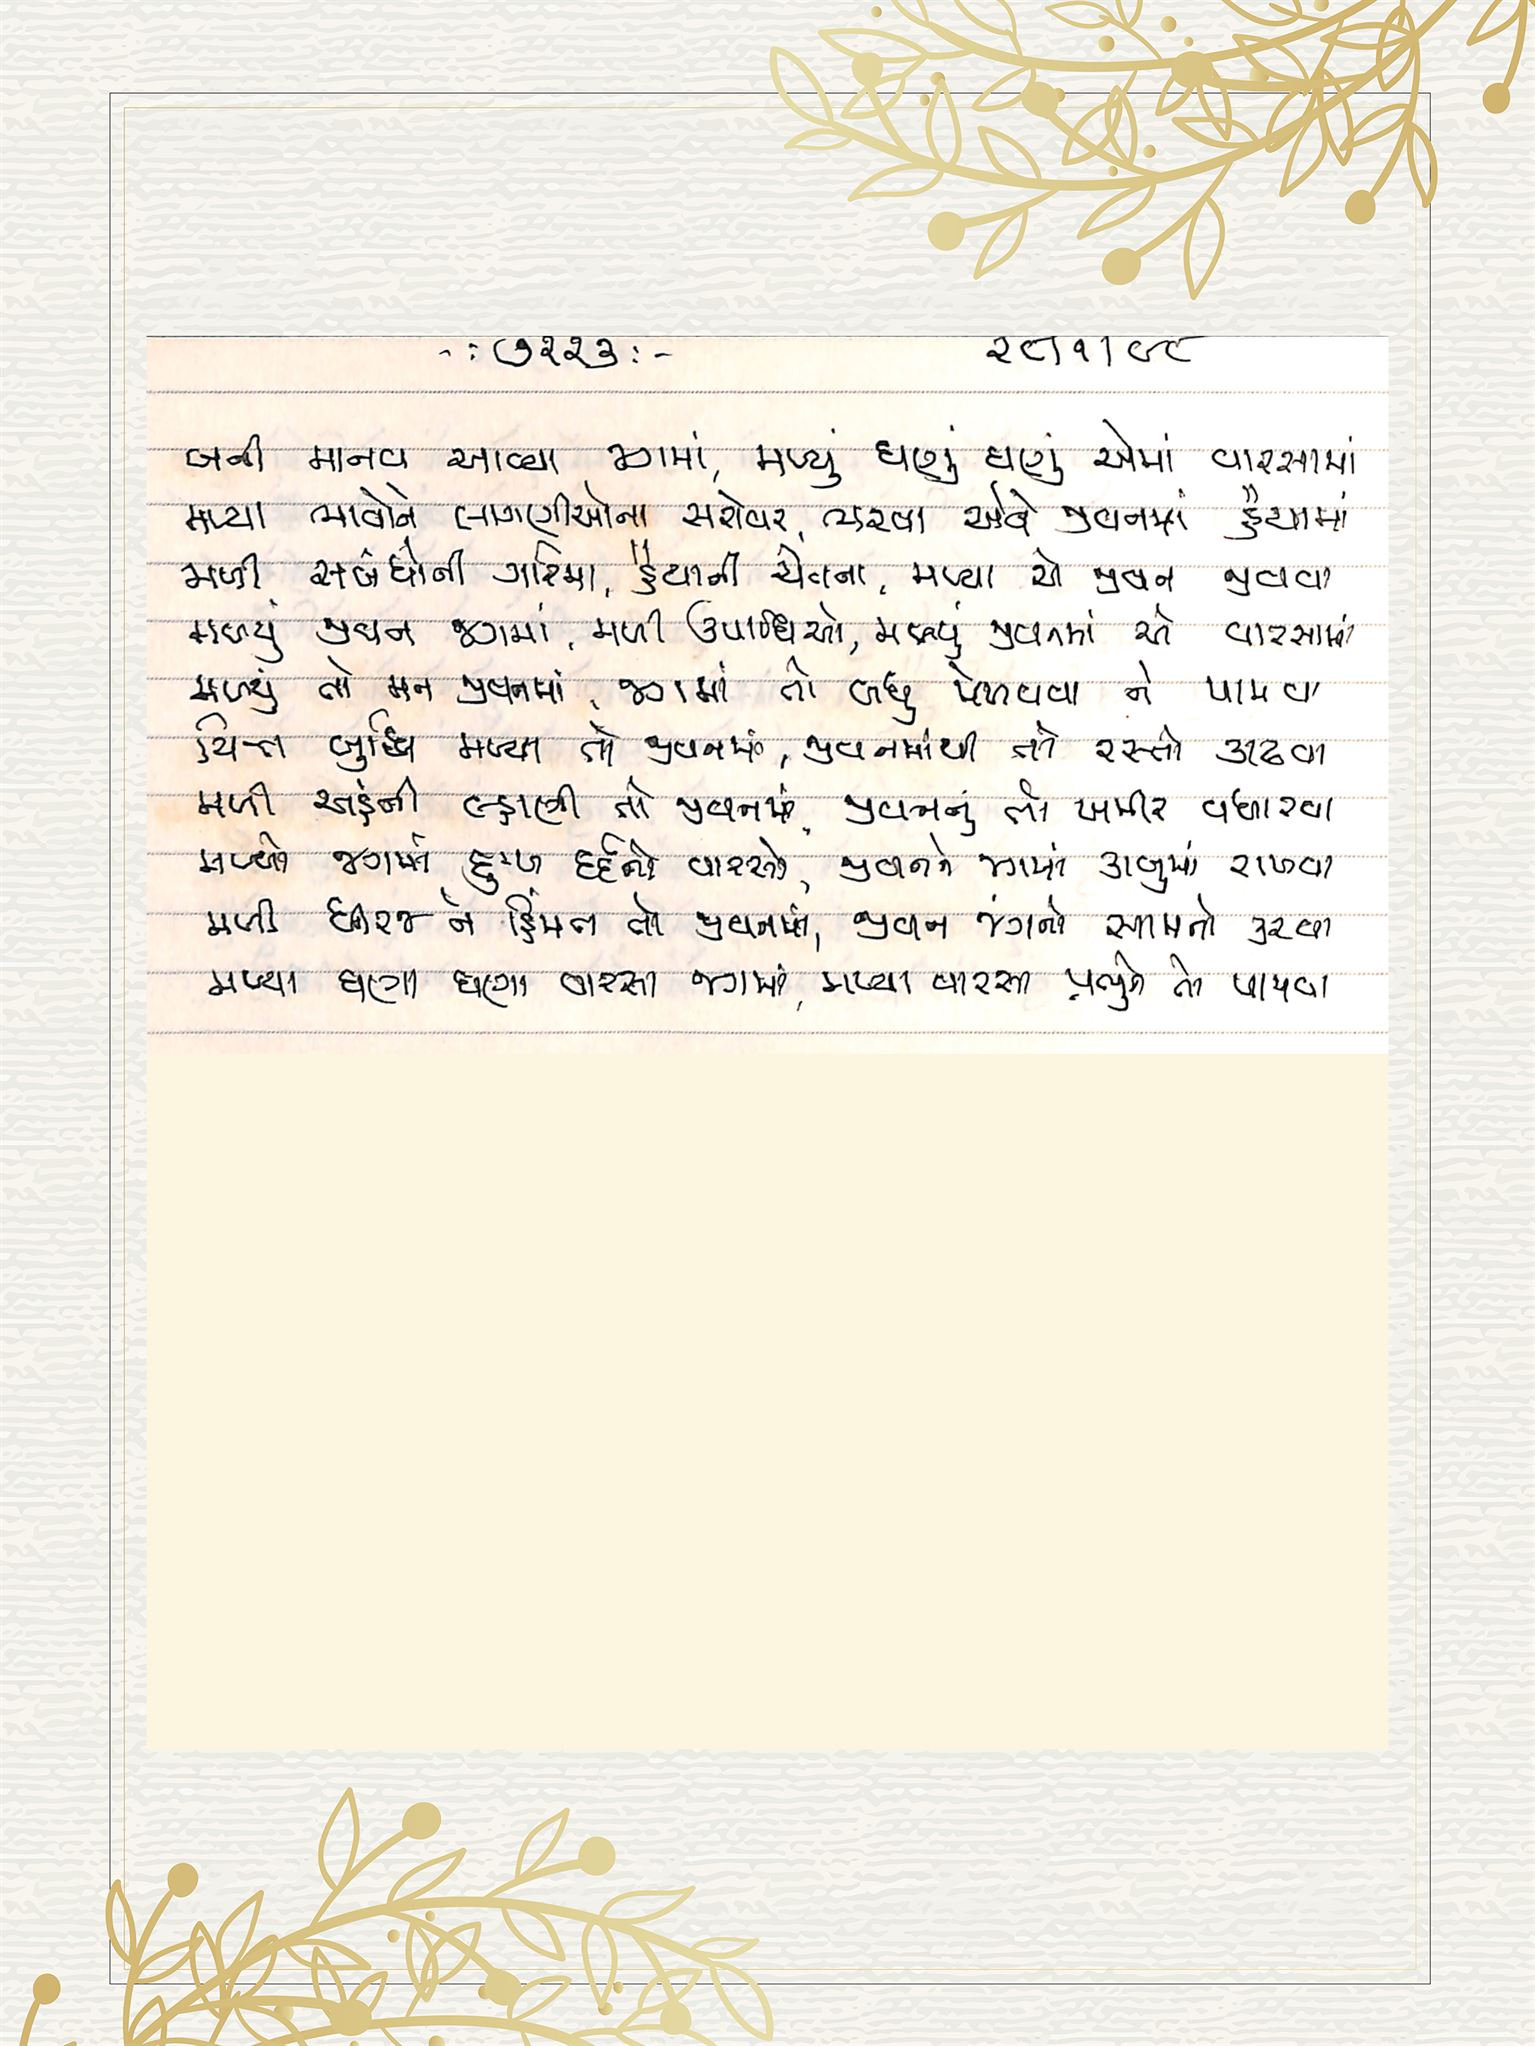 -: ૭૨૨૩ :- ૨૮।૧।૯૮
બની માનવ આવ્યા જગમાં, મળ્યું ઘણું ઘણું એમાં વારસામાં
મળ્યા ભાવોને લાગણીઓના સરોવર, ભરવા એવે જીવનમાં હૈયામાં
મળી સબંધોની ગરિમા, હૈયાની ચેતના, મળ્યા એ જીવન જીવવા
મળ્યું જીવન જગમાં, મળી ઉપાધિઓ, મળ્યું જીવનમાં એ વારસામાં
મળ્યું તો મન જીવનમાં, જગમાં તો બધું મેળવવા ને પામવા
ચિત્ત બુદ્ધિ મળ્યા તો જીવનમાં, જીવનમાંથી તો રસ્તો કાઢવા
મળી અહંની લ્હાણી તો જીવનમાં, જીવનનું તો ખમીર વધારવા
મળ્યો જગમાં દુઃખ દર્દનો વારસો, જીવનને જગમાં કાબુમાં રાખવા
મળી ધીરજ ને હિંમત તો જીવનમાં, જીવન જંગનો સામનો કરવા
મળ્યા ઘણા ઘણા વારસા જગમાં, મળ્યા વારસા પ્રભુને તો પામવા